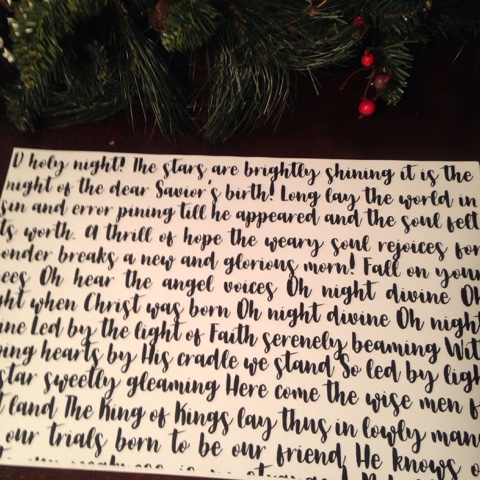 O holy night! The stars are brightly shining it is the
night of the dear Savior's birth! Long lay the world in
sin and error pining till he appeared and the soul felt
ts worth. A thrill of hope the weary soul rejoices for
onder breaks a new and glorious morn! Fall on your
ees Oh hear the angel voices Oh night divine Oh
ght when Christ was born Oh night divine Oh night
ine Led by the light of Faith serenely beaming Wit
ing hearts by His cradle we stand So led by ligh
star sweetly gleaming Here come the wise men f
t land The King of Kings lay thus in lowly man
our trials born to be our friend He knows o